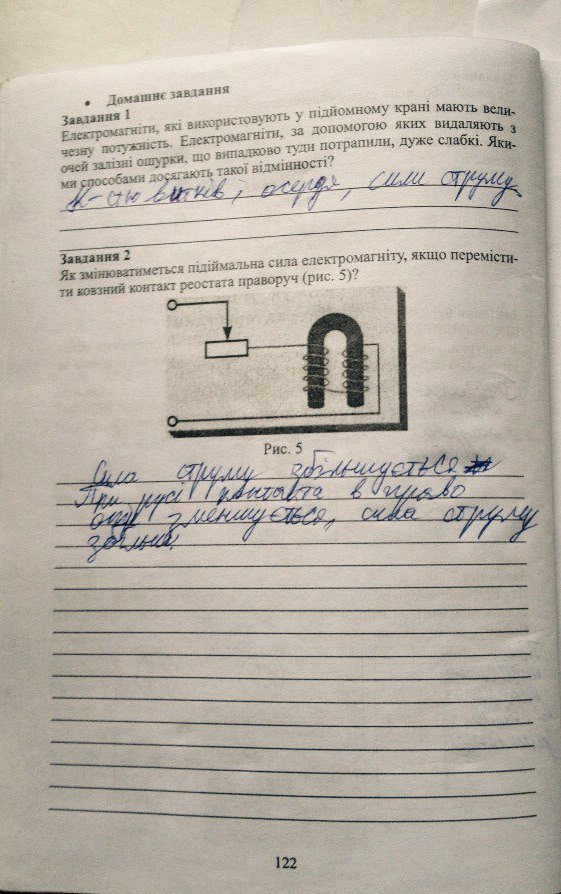 • Домашнє завдання
Завдання 1
Електромагніти, які використовують у підйомному крані мають вели-
чезну потужність. Електромагніти, за допомогою яких видаляють з
очей залізні ошурки, що випадково туди потрапили, дуже слабкі. Яки-
ми способами досягають такої відмінності?
к-стю витків, осердя, сили струму
Завдання 2
Як змінюватиметься підіймальна сила електромагніту, якщо перемісти-
ти ковзний контакт реостата праворуч (рис. 5)?
Рис. 5
Сила струму збільшується
При русі контакта в право
зменшується, сила струму
збільш.
122